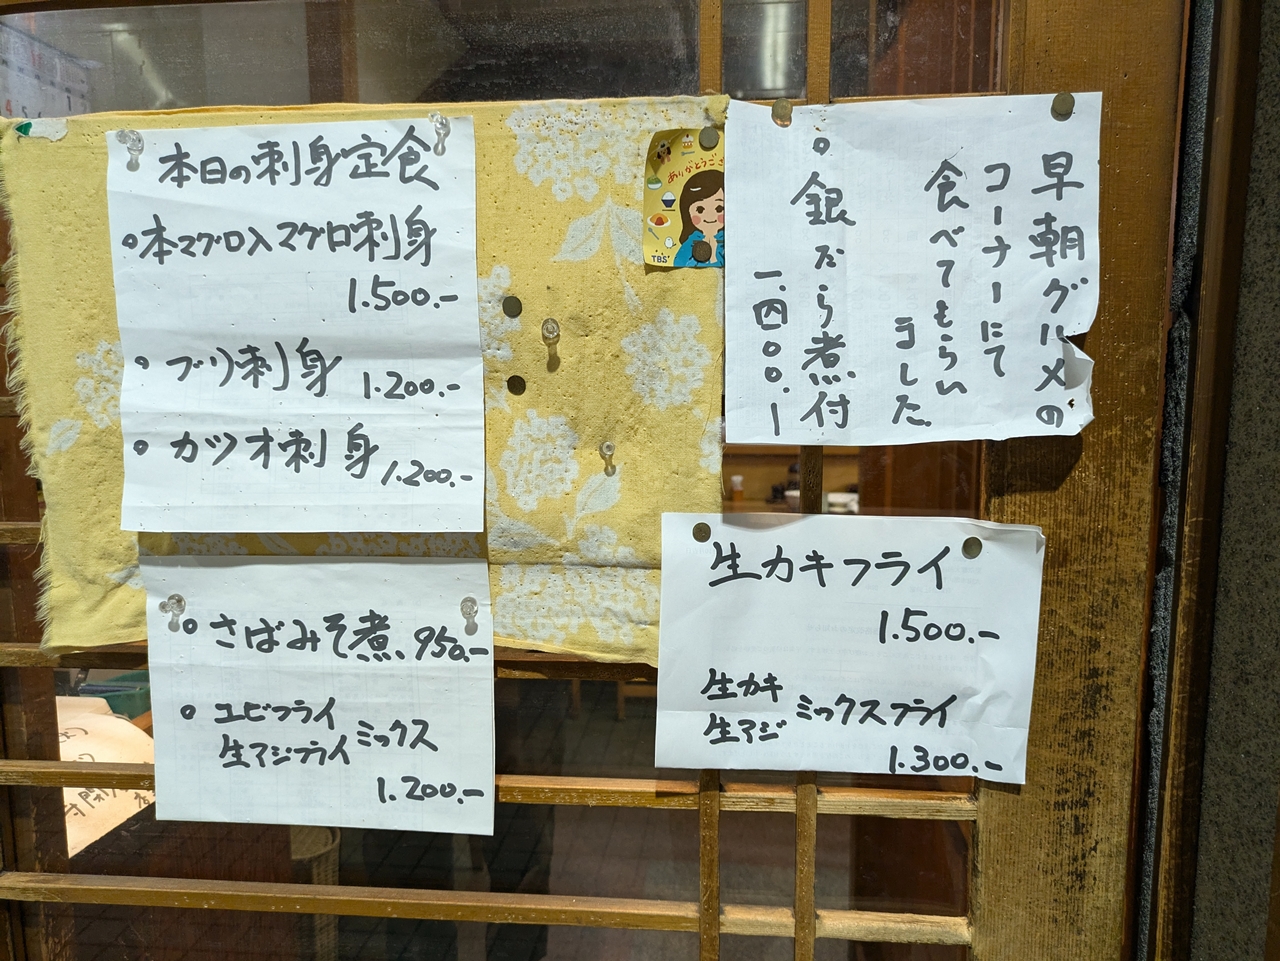 本日の刺身定食
○本マグロ入マグロ刺身
1.500.-
○ブリ刺身 1.200.-
○カツオ刺身 1.200.-
○さばみそ煮 950.-
○エビフライ
生アジフライ ミックス
1.200.-
ありがとうござ
TBS
早朝グルメの
コーナーにて
食べてもらい
ました
○銀だら煮付
一、四〇〇.ー
生カキフライ
1.500.-
生カキ
生アジ ミックスフライ
1.300.-